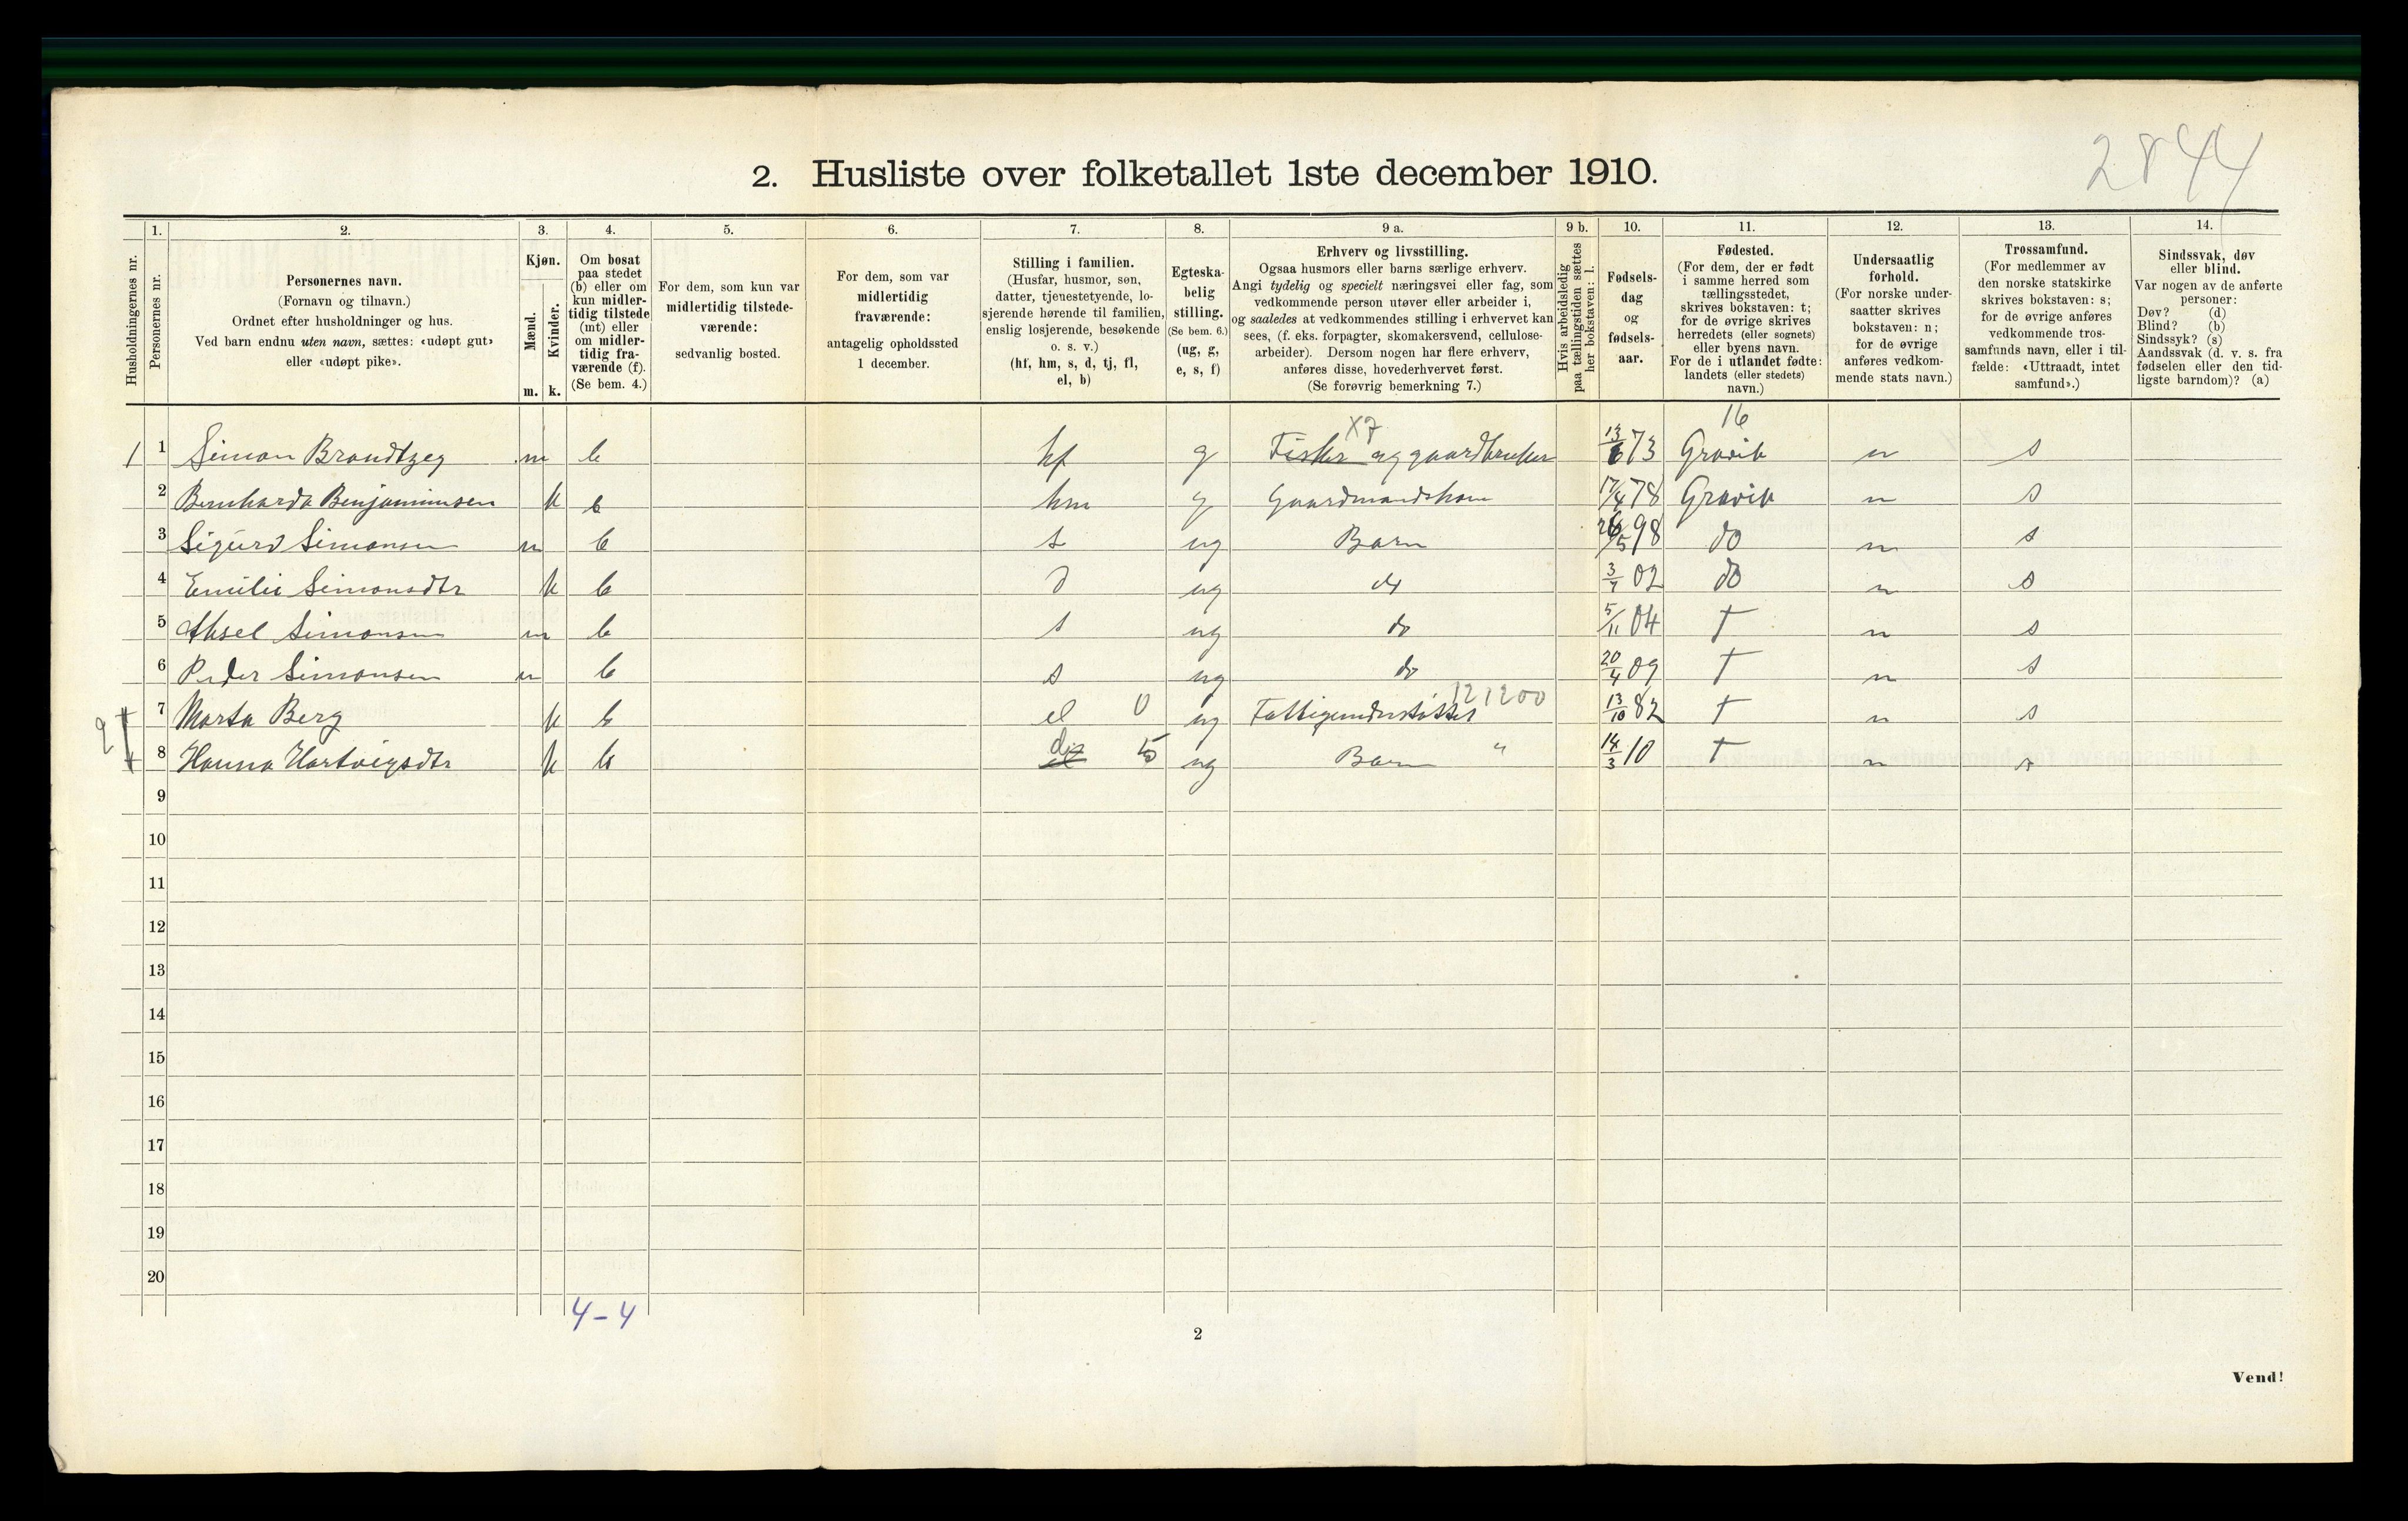 2844
2. Husliste over folketallet 1ste december 1910.
Husholdningernes nr.
1.
Personernes nr.
2.
Personernes navn.
(Fornavn og tilnavn.)
Ordnet efter husholdninger og hus.
Ved barn endnu uten navn, sættes: «udøpt gut»
eller «udøpt pike».
3.
Kjøn.
Mænd.
Kvinder.
m. k.
4.
Om bosat
paa stedet
(b) eller om
kun midler-
tidig tilstede
(mt) eller
om midler-
tidig fra-
værende (f).
(Se bem. 4.)
5.
For dem, som kun var
midlertidig tilstede-
værende:
sedvanlig bosted.
6.
For dem, som var
midlertidig
fraværende:
antagelig opholdssted
1 december.
7.
Stilling i familien.
(Husfar, husmor, søn,
datter, tjenestetyende, lo-
sjerende hørende til familien,
enslig losjerende, besøkende
o. s. v.)
(hf, hm, s, d, tj, fl,
el, b)
8.
Egteska-
belig
stilling.
(Se bem. 6.)
(ug, g,
e, s, f)
9 a.
Erhverv og livsstilling.
Ogsaa husmors eller barns særlige erhverv.
Angi tydelig og specielt næringsvei eller fag, som
vedkommende person utøver eller arbeider i,
og saaledes at vedkommendes stilling i erhvervet kan
sees, (f. eks. forpagter, skomakersvend, cellulose-
arbeider). Dersom nogen har flere erhverv,
anføres disse, hovederhvervet først.
(Se forøvrig bemerkning 7.)
9 b.
Hvis arbeidsledig
paa tællingstiden sættes
her bokstaven: l.
10.
Fødsels-
dag
og
fødsels-
aar.
11.
Fødested.
(For dem, der er født
i samme herred som
tællingsstedet,
skrives bokstaven: t;
for de øvrige skrives
herredets (eller sognets)
eller byens navn.
For de i utlandet fødte:
landets (eller stedets)
navn.)
12.
Undersaatlig
forhold.
(For norske under-
saatter skrives
bokstaven: n;
for de øvrige
anføres vedkom-
mende stats navn.)
13.
Trossamfund.
(For medlemmer av
den norske statskirke
skrives bokstaven: s;
for de øvrige anføres
vedkommende tros-
samfunds navn, eller i til-
fælde: «Uttraadt, intet
samfund».)
14.
Sindssvak, døv
eller blind.
Var nogen av de anførte
personer:
Døv? (d)
Blind? (b)
Sindssyk? (s)
Aandssvak (d. v. s. fra
fødselen eller den tid-
ligste barndom)? (a)
X7 16
1 1 Simon Brandtzeg m b hf g Fisker og gaardbruker 13/6 73 Gravik n s
2 Bernharda Benjaminsen k b hm g Gaardmandskone 17/4 78 Gravik n s
3 Sigurd Simonsen m b s ug Barn 26/5 98 do n s
4 Emilie Simonsdtr k b d ug do 3/7 02 do n s
5 Aksel Simonsen m b s ug do 5/11 04 T n s
6 Peder Simonsen m b s ug do 20/4 09 T n s
121200
2 7 Marta Berg k b el 0 ug Fattigunderstøttet 13/10 82 T n s
8 Hanna Hartvigsdtr k b el d 5 ug Barn " 14/3 10 T n s
9
10
11
12
13
14
15
16
17
18
19
20
4-4
2
Vend!